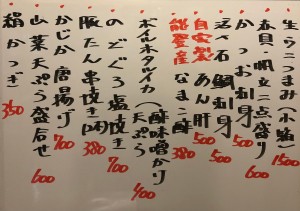 生うにつまみ(小箱) 1500
春貝・帆立二点盛り 600
かつお刺身 500
活〆石鯛刺身 500
自家製あん肝 500
能登産なまこ酢 380
ボイルホタルイカ(酢味噌かけ 天ぷら) 400
のどぐろ塩焼き 700
豚たん串焼き(2本) 380
かじか唐揚げ 700
山菜天ぷら盛合せ 600
絹かつぎ 350